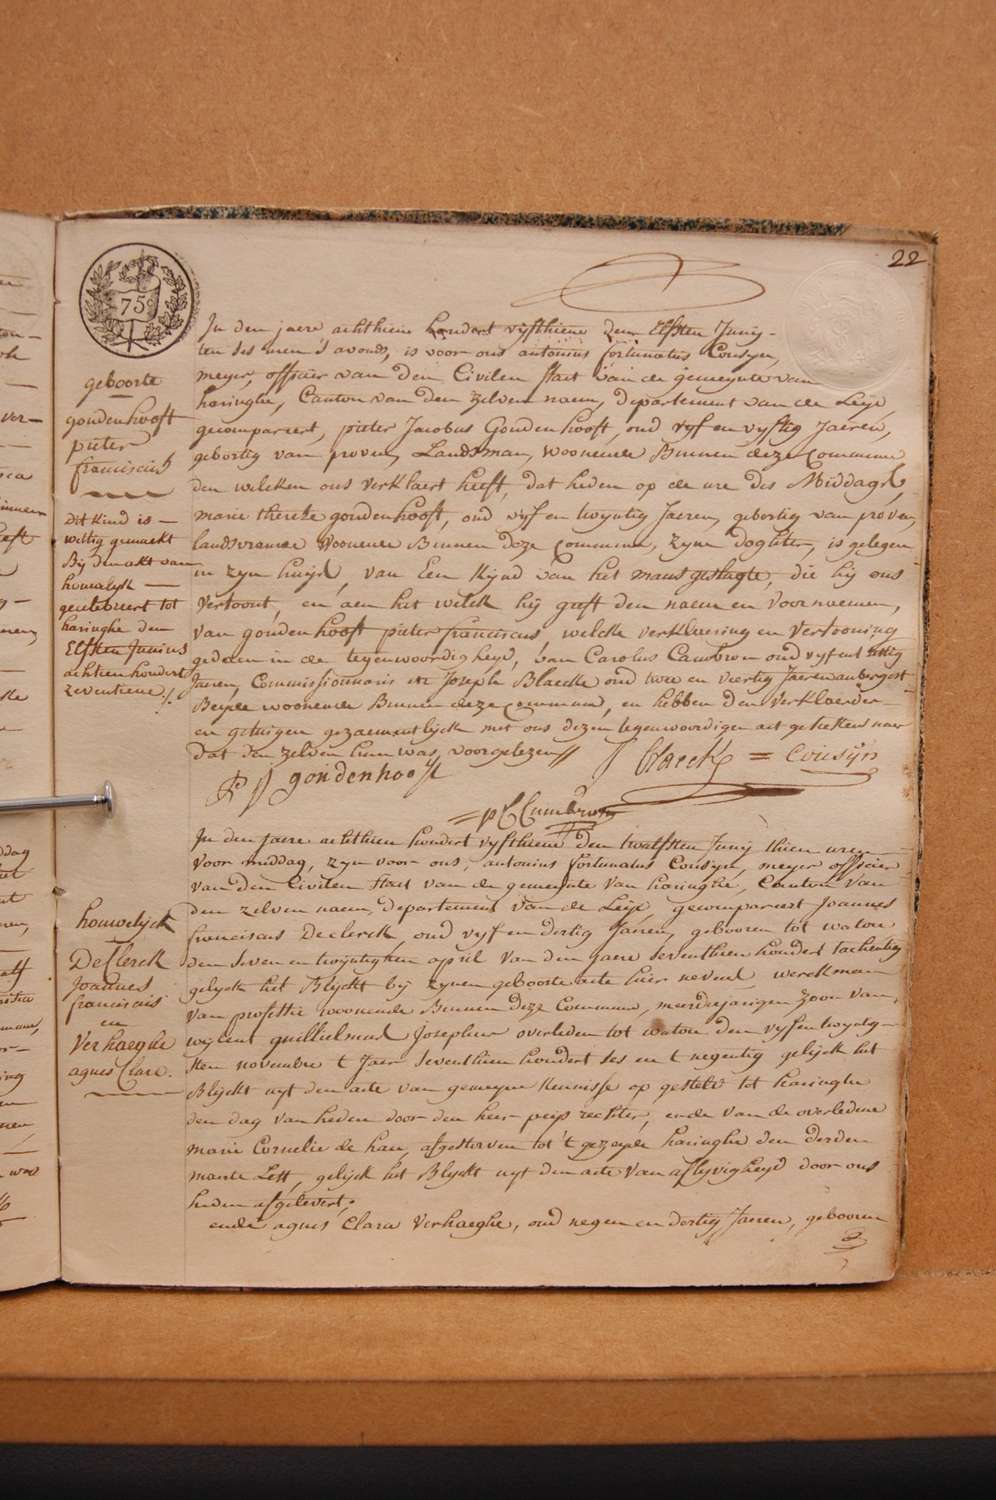 22
75c
In den jaere achthien hondert vyfthiene den Elfsten Juny
ten ses uren 's avonds, is voor ons antonius fortunatus Cousyn,
meyer, officier van den Civilen staet van de gemeynte van
haringhe, Canton van den zelven naem, departement van de Leije,
gecompareert, pieter Jacobus Gondenhooft, oud vyf en vyftig Jaeren,
gebortig van proven, Landsman, woonende Binnen deze Commune
den welcken ons verklaert heeft, dat heden op de ure des Middags,
marie therese gondenhooft, oud vyf en twyntig Jaeren, gebortig van proven,
landsvrouwe woonende Binnen deze Commune, zyne doghter, is gelegen
in zyn huys, van Een Kind van het mansgeslagte, die hij ons
vertoont, en aen het welck hij geeft den naem en voornaemen,
van gondenhooft pieter franciscus, welcke verklaering en vertooning
gedaen in de tegenwoordigheyd, van Carolus Cambron oud vyf en
Jaeren, Commissionnaris en Joseph Blaecke oud twee en veertig Jaeren
Beyde woonende Binnen deze Commune, en hebben den verklaerder
en getuigen gezaementlyck met ons dezen tegenwoordigen act geteekent naer
dat den zelven hun was voorgelezen //
gondenhooft
J Blaecke = Cousyn
= p C Cambron
geboorte
gondenhooft
pieter
franciscus
Dit kind is
wettig gemaekt
Bij den akt van
houwelyk
gecelebreert tot
haringhe den
Elfsten Junius
achtien hondert
zeventiene /.
In den jaere achthien hondert vyfthiene den twalfsten Junij thien uren
voor middag, zyn voor ons, antonius fortunatus Cousyn, meyer officier
van den Civilen staet van de gemeynte van haringhe, Canton van
den zelven naem, departement van de Leije, gecompareert Joannes
franciscus Declerck, oud vyf en dertig Jaeren, gebooren tot watou
den seven en twyntighsten april van den jaere seventhien hondert tachentig
gelyck het Blyckt bij zynen geboorte acte hier nevens werckman
van professie woonende Binnen deze Commune, meerderjarigen zoon van,
wylent guillielmus Josephus overleden tot watou den vyfentwyntig-
sten novembre t Jaer seventhien hondert ses en t negentig gelijck het
Blyckt uyt den acte van gemeyne kennisse op gestelt tot haringhe
den dag van heden door den heer peys rechter, ende van de overledene
marie Cornelie de haen, afgestorven tot 't gezeyde haringhe den derden
maerte Lest, gelijck het Blyckt uyt den acte van aflyvigheyd door ons
heden afgelevert;
ende agnes Clara Verhaeghe, oud negen en dertig Jaeren, gebooren
houwelyck
De Clerck
Joannes
franciscus
en
Verhaeghe
agnes Clare.